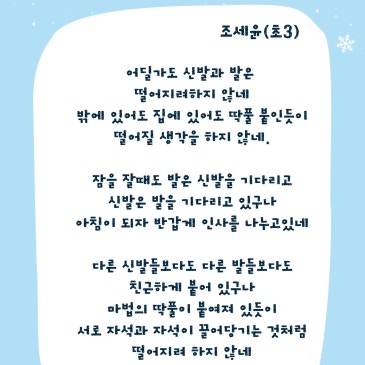 조세윤(초3)
어딜가도 신발과 발은
떨어지려하지 않네
밖에 있어도 집에 있어도 딱풀 붙인듯이
떨어질 생각을 하지 않네.
잠을 잘때도 발은 신발을 기다리고
신발은 발을 기다리고 있구나
아침이 되자 반갑게 인사를 나누고있네
다른 신발들보다도 다른 발들보다도
친근하게 붙어 있구나
마법의 딱풀이 붙여져 있듯이
서로 자석과 자석이 끌어당기는 것처럼
떨어지려 하지 않네